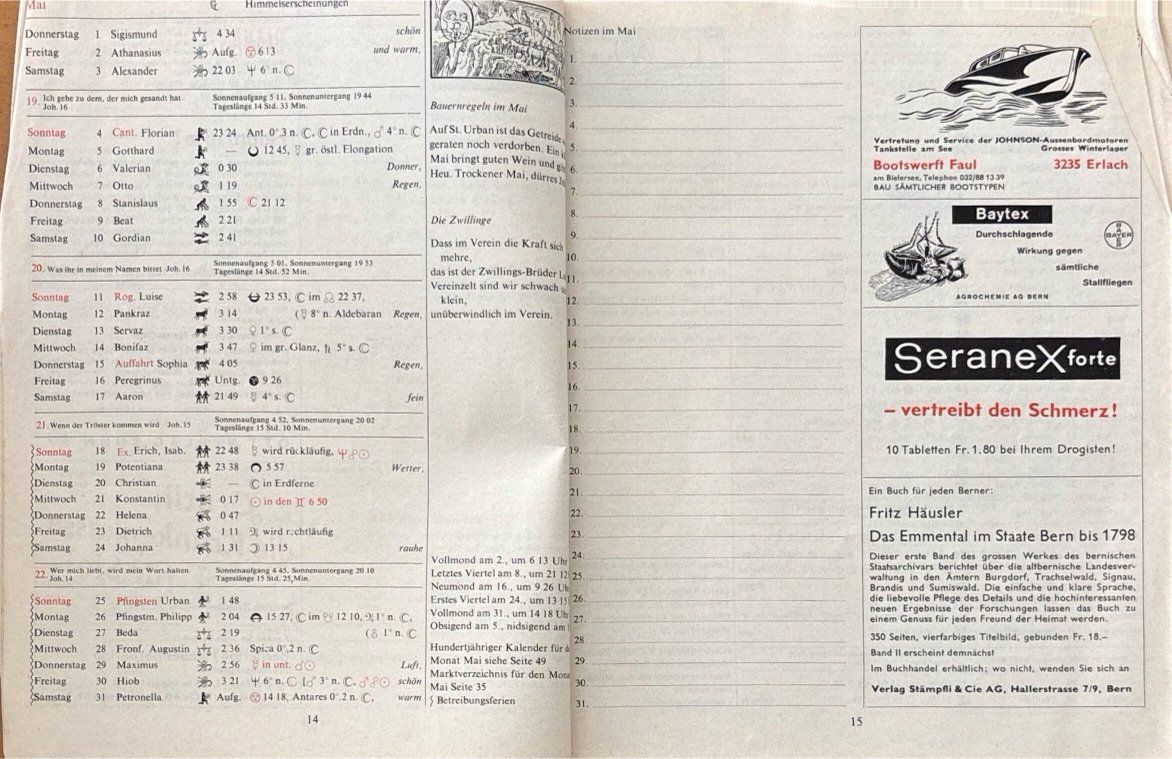 Mai Himmelserscheinungen
Donnerstag 1 Sigismund 4 34 schön
Freitag 2 Athanasius Aufg. 6 13 und warm,
Samstag 3 Alexander 22 03 ♆ 6° n. ☾
19. Ich gehe zu dem, der mich gesandt hat Joh. 16
Sonnenaufgang 5 11, Sonnenuntergang 19 44
Tageslänge 14 Std. 33 Min.
Sonntag 4 Cant. Florian 23 24 Ant. 0°,3 n. ☾, ☾ in Erdn., ♂ 4° n. ☾
Montag 5 Gotthard — 12 45, ☿ gr. östl. Elongation
Dienstag 6 Valerian 0 30 Donner,
Mittwoch 7 Otto 1 19 Regen,
Donnerstag 8 Stanislaus 1 55 ☾ 21 12
Freitag 9 Beat 2 21
Samstag 10 Gordian 2 41
20. Was ihr in meinem Namen bittet Joh. 16
Sonnenaufgang 5 01, Sonnenuntergang 19 53
Tageslänge 14 Std. 52 Min.
Sonntag 11 Rog. Luise 2 58 23 53, ☾ im ☊ 22 37,
Montag 12 Pankraz 3 14 (☿ 8° n. Aldebaran Regen,
Dienstag 13 Servaz 3 30 ♀ 1° s. ☾
Mittwoch 14 Bonifaz 3 47 ♀ im gr. Glanz, ♄ 5° s. ☾
Donnerstag 15 Auffahrt Sophia 4 05 Regen,
Freitag 16 Peregrinus Untg. 9 26
Samstag 17 Aaron 21 49 ☿ 4° s. ☾ fein
21. Wenn der Tröster kommen wird Joh. 15
Sonnenaufgang 4 52, Sonnenuntergang 20 02
Tageslänge 15 Std. 10 Min.
Sonntag 18 Ex. Erich, Isab. 22 48 ☿ wird rückläufig, ♆ ☍ ☉
Montag 19 Potentiana 23 38 5 57 Wetter,
Dienstag 20 Christian — ☾ in Erdferne
Mittwoch 21 Konstantin 0 17 ☉ in den ♊ 6 50
Donnerstag 22 Helena 0 47
Freitag 23 Dietrich 1 11 ♃ wird rechtläufig
Samstag 24 Johanna 1 31 ☽ 13 15 rauhe
22. Wer mich liebt, wird mein Wort halten Joh. 14
Sonnenaufgang 4 45, Sonnenuntergang 20 10
Tageslänge 15 Std. 25 Min.
Sonntag 25 Pfingsten Urban 1 48
Montag 26 Pfingstm. Philipp 2 04 15 27, ☾ im ☋ 12 10, ♃ 1° n. ☾,
Dienstag 27 Beda 2 19 (♅ 1° n. ☾
Mittwoch 28 Fronf. Augustin 2 36 Spica 0°,2 n. ☾
Donnerstag 29 Maximus 2 56 ☿ in unt. ☌ ☉ Luft,
Freitag 30 Hiob 3 21 ♆ 6° n. ☾ [♂ 3° n. ☾, ♂ ☍ ☉ schön
Samstag 31 Petronella Aufg. 14 18, Antares 0°,2 n. ☾, warm
14
Bauernregeln im Mai
Auf St. Urban ist das Getreide
geraten noch verdorben. Ein
Mai bringt guten Wein und
Heu. Trockener Mai, dürres
Die Zwillinge
Dass im Verein die Kraft sich
mehre,
das ist der Zwillings-Brüder
Vereinzelt sind wir schwach
klein,
unüberwindlich im Verein.
Vollmond am 2., um 6 13 Uhr
Letztes Viertel am 8., um 21 12
Neumond am 16., um 9 26 Uhr
Erstes Viertel am 24., um 13 15
Vollmond am 31., um 14 18 Uhr
Obsigend am 5., nidsigend am
Hundertjähriger Kalender für
Monat Mai siehe Seite 49
Marktverzeichnis für den
Mai Seite 35
Betreibungsferien
Notizen im Mai
1.
2.
3.
4.
5.
6.
7.
8.
9.
10.
11.
12.
13.
14.
15.
16.
17.
18.
19.
20.
21
22.
23.
24.
25.
26.
27.
28.
29.
30.
31.
15
Vertretung und Service der JOHNSON-Aussenbordmotoren
Tankstelle am See Grosses Winterlager
Bootswerft Faul 3235 Erlach
am Bielersee, Telephon 032/88 13 39
BAU SÄMTLICHER BOOTSTYPEN
Baytex
Durchschlagende
Wirkung gegen
sämtliche
Stallfliegen
BAYER
BAYER
AGROCHEMIE AG BERN
SeraneX forte
– vertreibt den Schmerz!
10 Tabletten Fr. 1.80 bei Ihrem Drogisten!
Ein Buch für jeden Berner:
Fritz Häusler
Das Emmental im Staate Bern bis 1798
Dieser erste Band des grossen Werkes des bernischen
Staatsarchivars berichtet über die altbernische Landesver-
waltung in den Ämtern Burgdorf, Trachselwald, Signau,
Brandis und Sumiswald. Die einfache und klare Sprache,
die liebevolle Pflege des Details und die hochinteressanten
neuen Ergebnisse der Forschungen lassen das Buch zu
einem Genuss für jeden Freund der Heimat werden.
350 Seiten, vierfarbiges Titelbild, gebunden Fr. 18.–
Band II erscheint demnächst
Im Buchhandel erhältlich; wo nicht, wenden Sie sich an
Verlag Stämpfli & Cie AG, Hallerstrasse 7/9, Bern